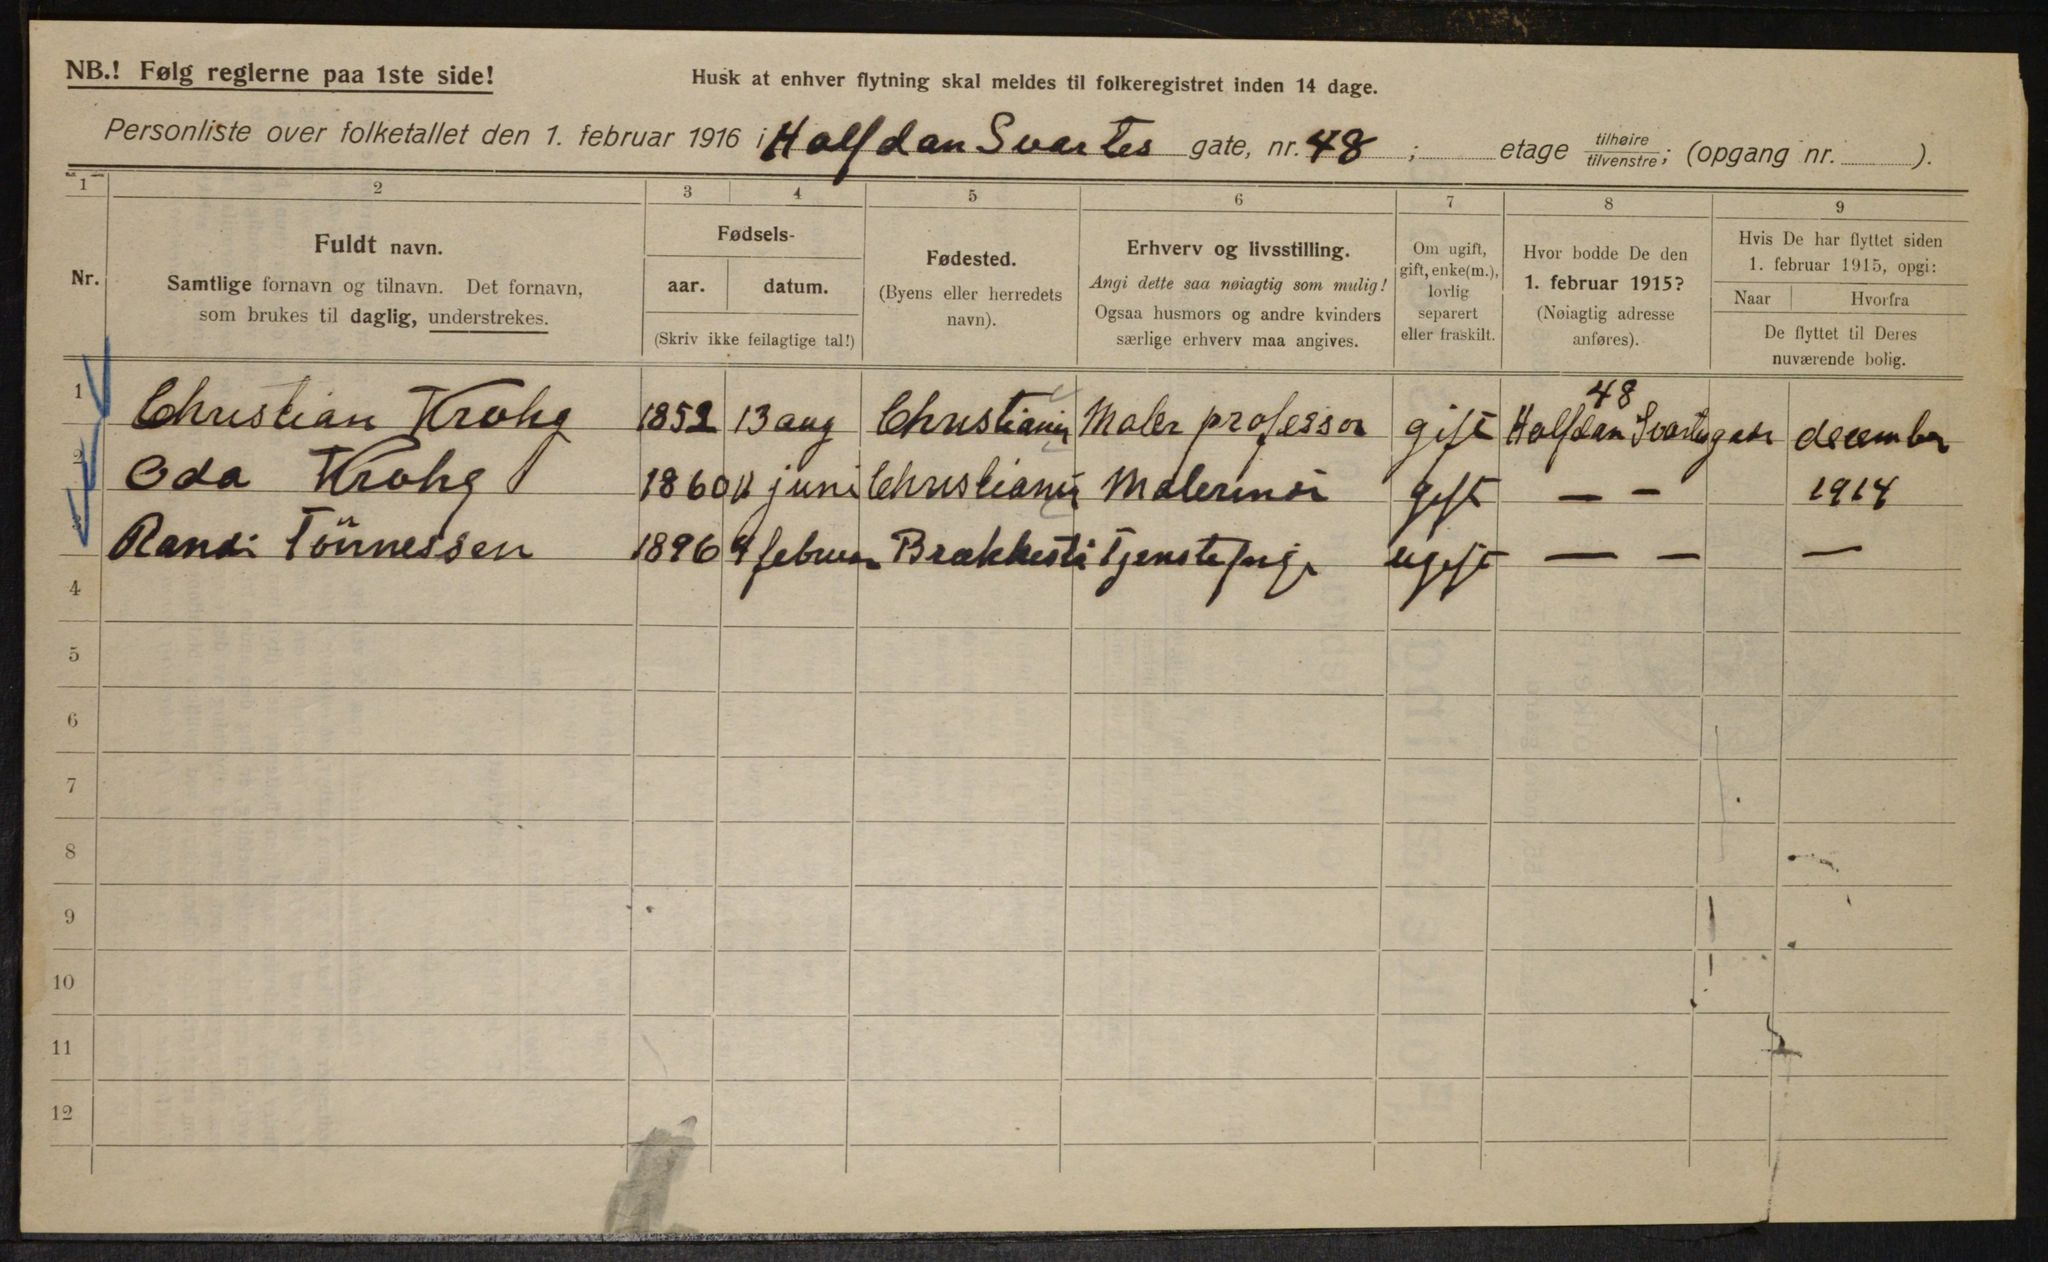 NB.! Følg reglerne paa 1ste side!
Husk at enhver flytning skal meldes til folkeregistret inden 14 dage.
Personliste over folketallet den 1. februar 1916 i Halfdan Svartes gate, nr. 48 ; etage tilhøire/tilvenstre; (opgang nr. ).
1 2 3 4 5 6 7 8 9
Nr.
Fuldt navn.
Samtlige fornavn og tilnavn. Det fornavn,
som brukes til daglig, understrekes.
Fødsels-
aar. datum.
(Skriv ikke feilagtige tal!)
Fødested.
(Byens eller herredets
navn).
Erhverv og livsstilling.
Angi dette saa nøiagtig som mulig!
Ogsaa husmors og andre kvinders
særlige erhverv maa angives.
Om ugift,
gift, enke(m.),
lovlig
separert
eller fraskilt.
Hvor bodde De den
1. februar 1915?
(Nøiagtig adresse
anføres).
Hvis De har flyttet siden
1. februar 1915, opgi:
Naar Hvorfra
De flyttet til Deres
nuværende bolig.
48
1 Christian Krohg 1852 13 aug Christiania Maler professor gift Halfdan Svartesgade december
2 Oda Krohg 1860 11 juni Christiania Malerinde gift — — 1914
3 Randi Tönnessen 1896 9 februar Tjenestepige ugift — — —
4
5
6
7
8
9
10
11
12